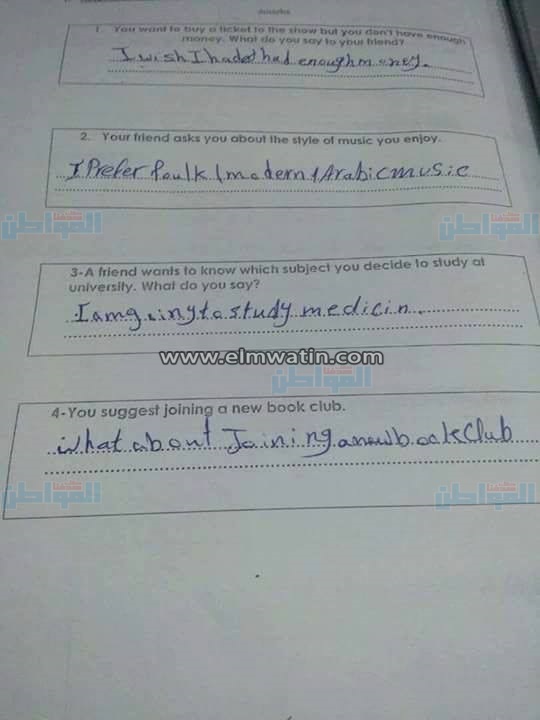 marks
1. You want to buy a ticket to the show but you don't have enough
money. What do you say to your friend?
I wish I had enough money.
2. Your friend asks you about the style of music you enjoy.
I Prefer Foulk / modern / Arabic music
المواطن
المواطن
3-A friend wants to know which subject you decide to study at
university. What do you say?
I am going to study medicin.
www.elmwatin.com
المواطن
4-You suggest joining a new book club.
what about Joining a new book Club
المواطن
المواطن